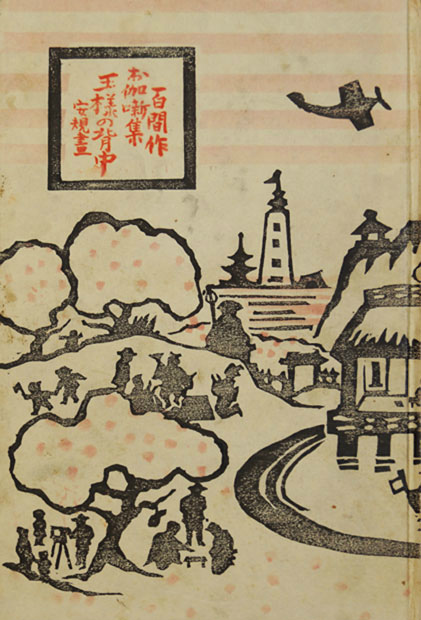 百閒作
お伽噺集
王様の背中
安規畫